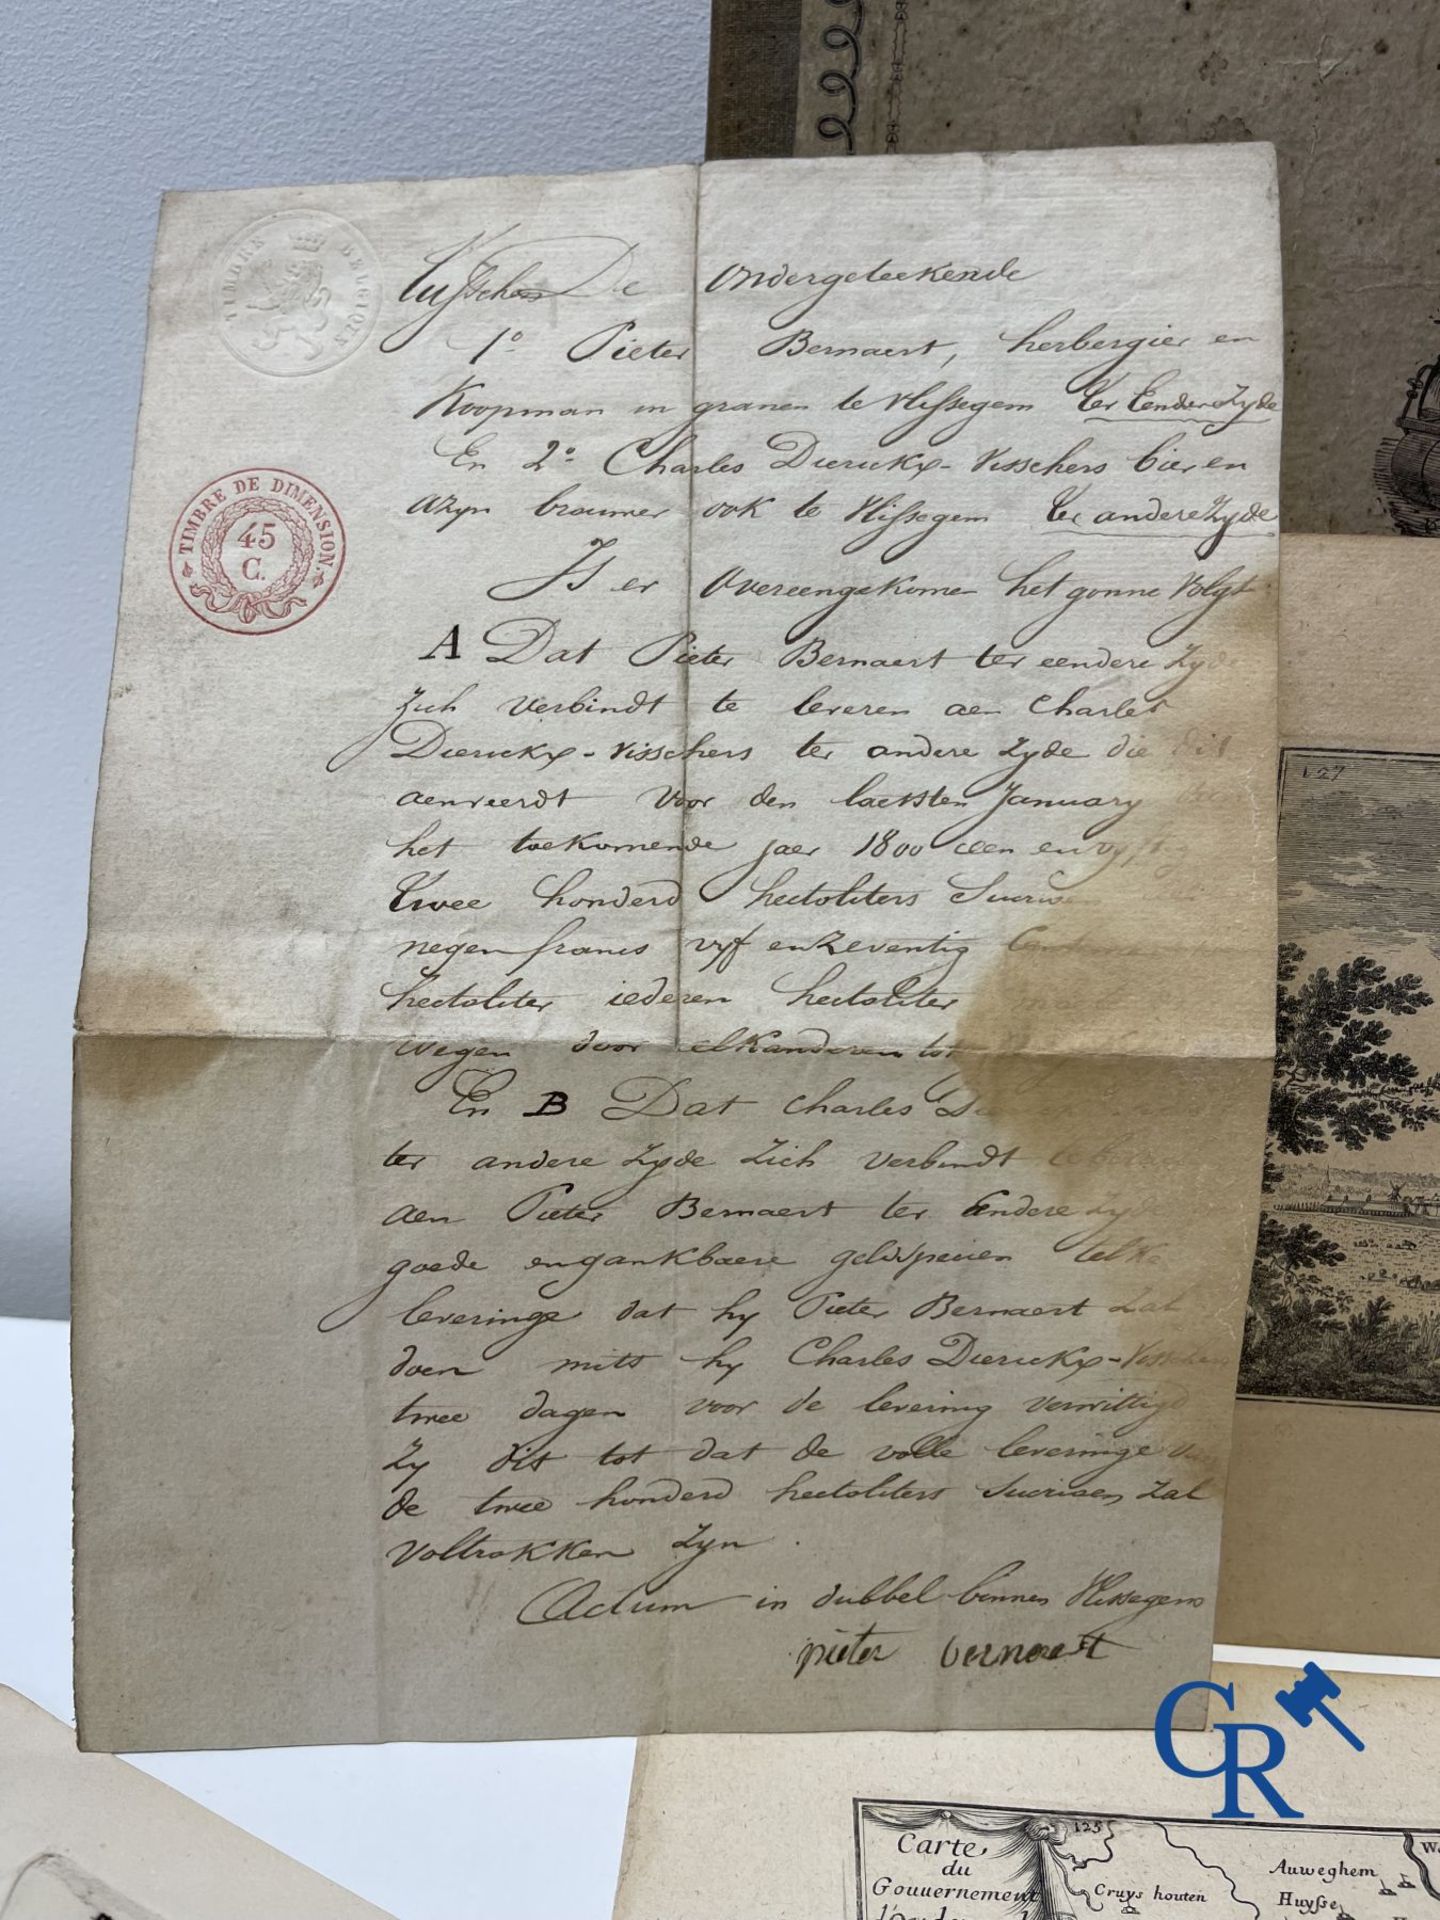 TIMBRE BELGIQUE
TIMBRE DE DIMENSION.
45
C.
Tusschen De Ondergeteekende
1° Pieter Bernaert, herbergier en
Koopman in granen te Hissegem Ter Eender Zyde
En 2° Charles Dierickx-Visschers bier en
azyn brouwer ook te Hissegem Ter andere Zyde
Is er Overeengekomen het gonne Volgt
A Dat Pieter Bernaert ter eendere Zyde
Zich verbindt te leveren aen Charles
Dierickx-Visschers ter andere Zyde die dit
aenveerdt voor den laetsten January
het toekomende jaer 1800 een en vyftig
Twee honderd hectoliters
negen francs vyf en Zeventig
hectoliter iederen hectoliter
wegen door elkanderen tot
En B Dat Charles
ter andere Zyde Zich verbindt te
aen Pieter Bernaert ter Eendere Zyde
goede en gankbaere geldspecien
leveringe dat hy Pieter Bernaert Zal
doen mits hy Charles Dierickx-Visschers
twee dagen voor de levering verwittigd
Zy dit tot dat de volle leveringe
de twee honderd hectoliters Zal
voltrokken Zyn.
Actum in dubbel binnen Hissegem
pieter bernaert
127
CR
125
Carte
du
Gouuernement
Cruys houten
Auweghem
Huysse